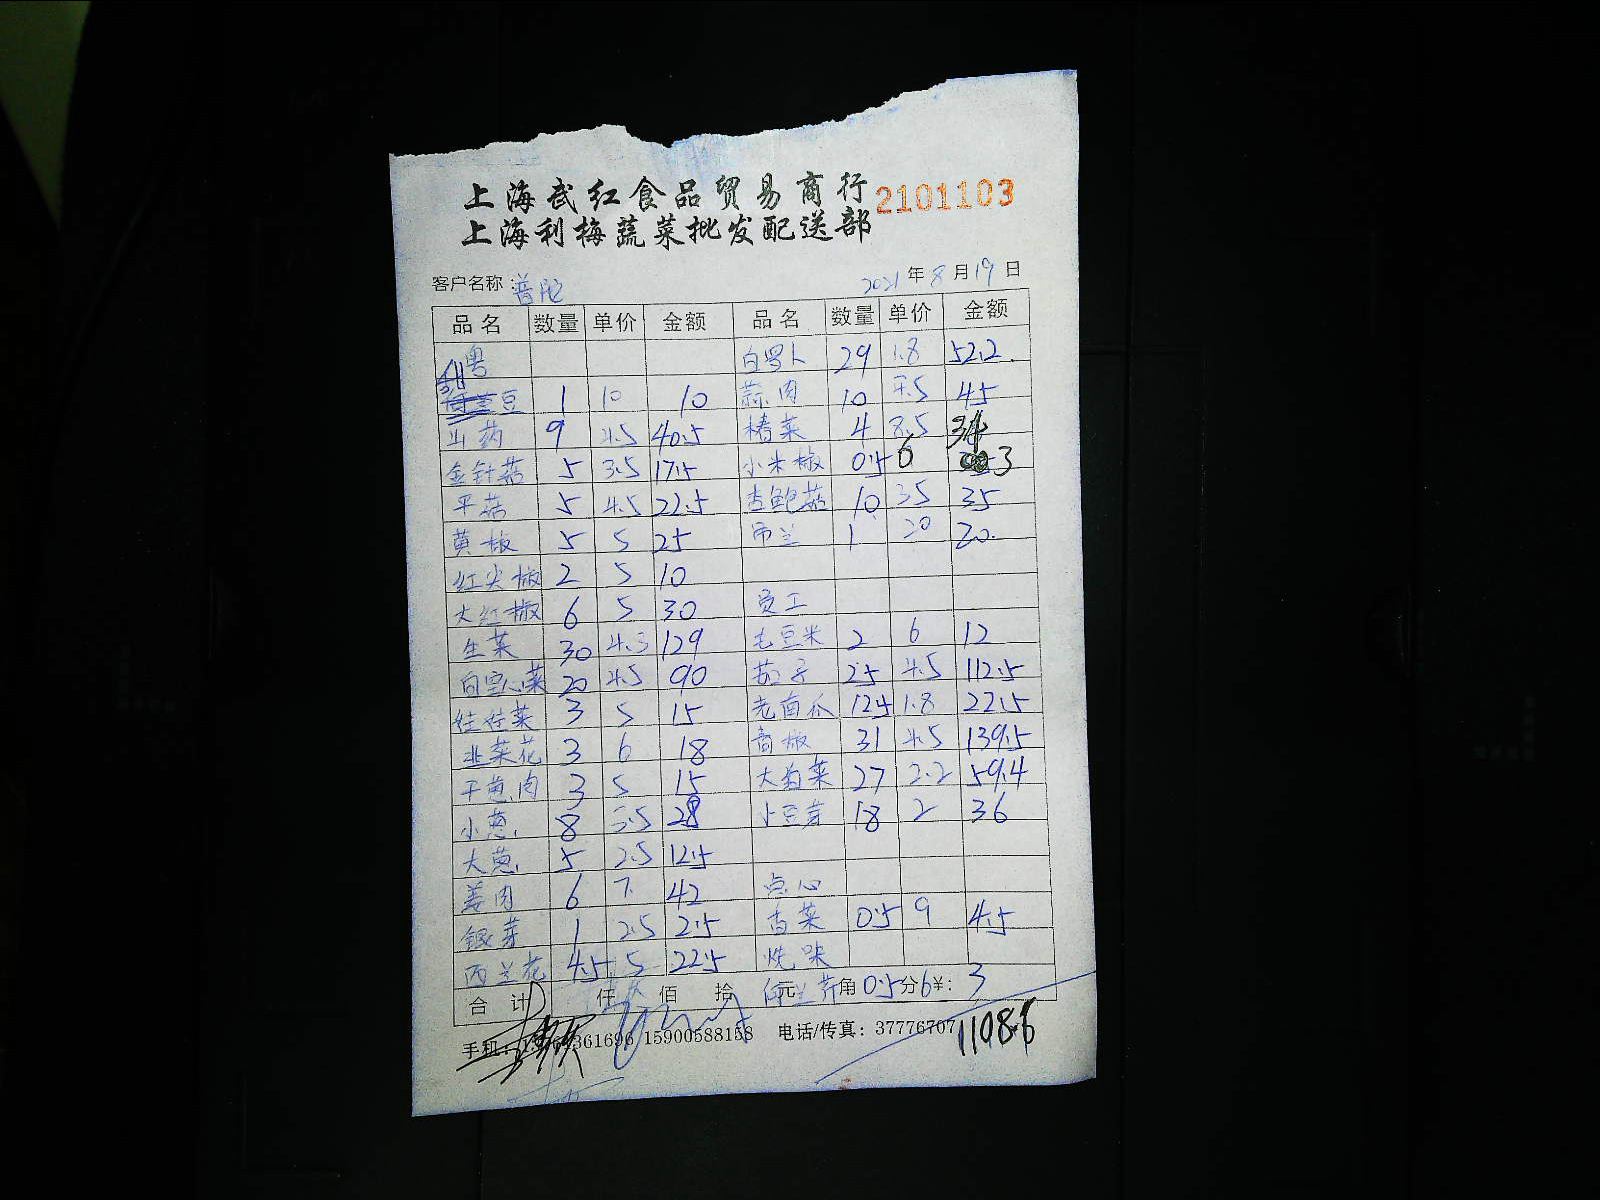 上海武红食品贸易商行 2101103
上海利梅蔬菜批发配送部
客户名称：普陀 2021年8月19日
品名 数量 单价 金额 品名 数量 单价 金额
粤 白罗卜 29 1.8 52.2
豆 1 10 10 蒜肉 10 4.5 45
山药 9 4.5 40.5 椿菜 4 8.5 34
金针菇 5 3.5 17.5 小米椒 0.5 6 3
平菇 5 4.5 22.5 杏鲍菇 10 3.5 35
黄椒 5 5 25 西兰 1 20 20
红尖椒 2 5 10
大红椒 6 5 30 员工
生菜 30 4.3 129 毛豆米 2 6 12
白空心菜 20 4.5 90 茄子 25 4.5 112.5
娃娃菜 3 5 15 老南瓜 12.5 1.8 22.5
韭菜花 3 6 18 青椒 31 4.5 139.5
干葱肉 3 5 15 大白菜 27 2.2 59.4
小葱 8 3.5 28 小豆芽 18 2 36
大葱 5 2.5 12.5
姜肉 6 7 42 点心
银芽 1 2.5 2.5 香菜 0.5 9 4.5
西兰花 4.5 5 22.5 烧味
合计 仟 佰 拾 元 角 0.5 分 6 ¥: 3
手机: 361696 15900588158 电话/传真: 37776707 1108.6